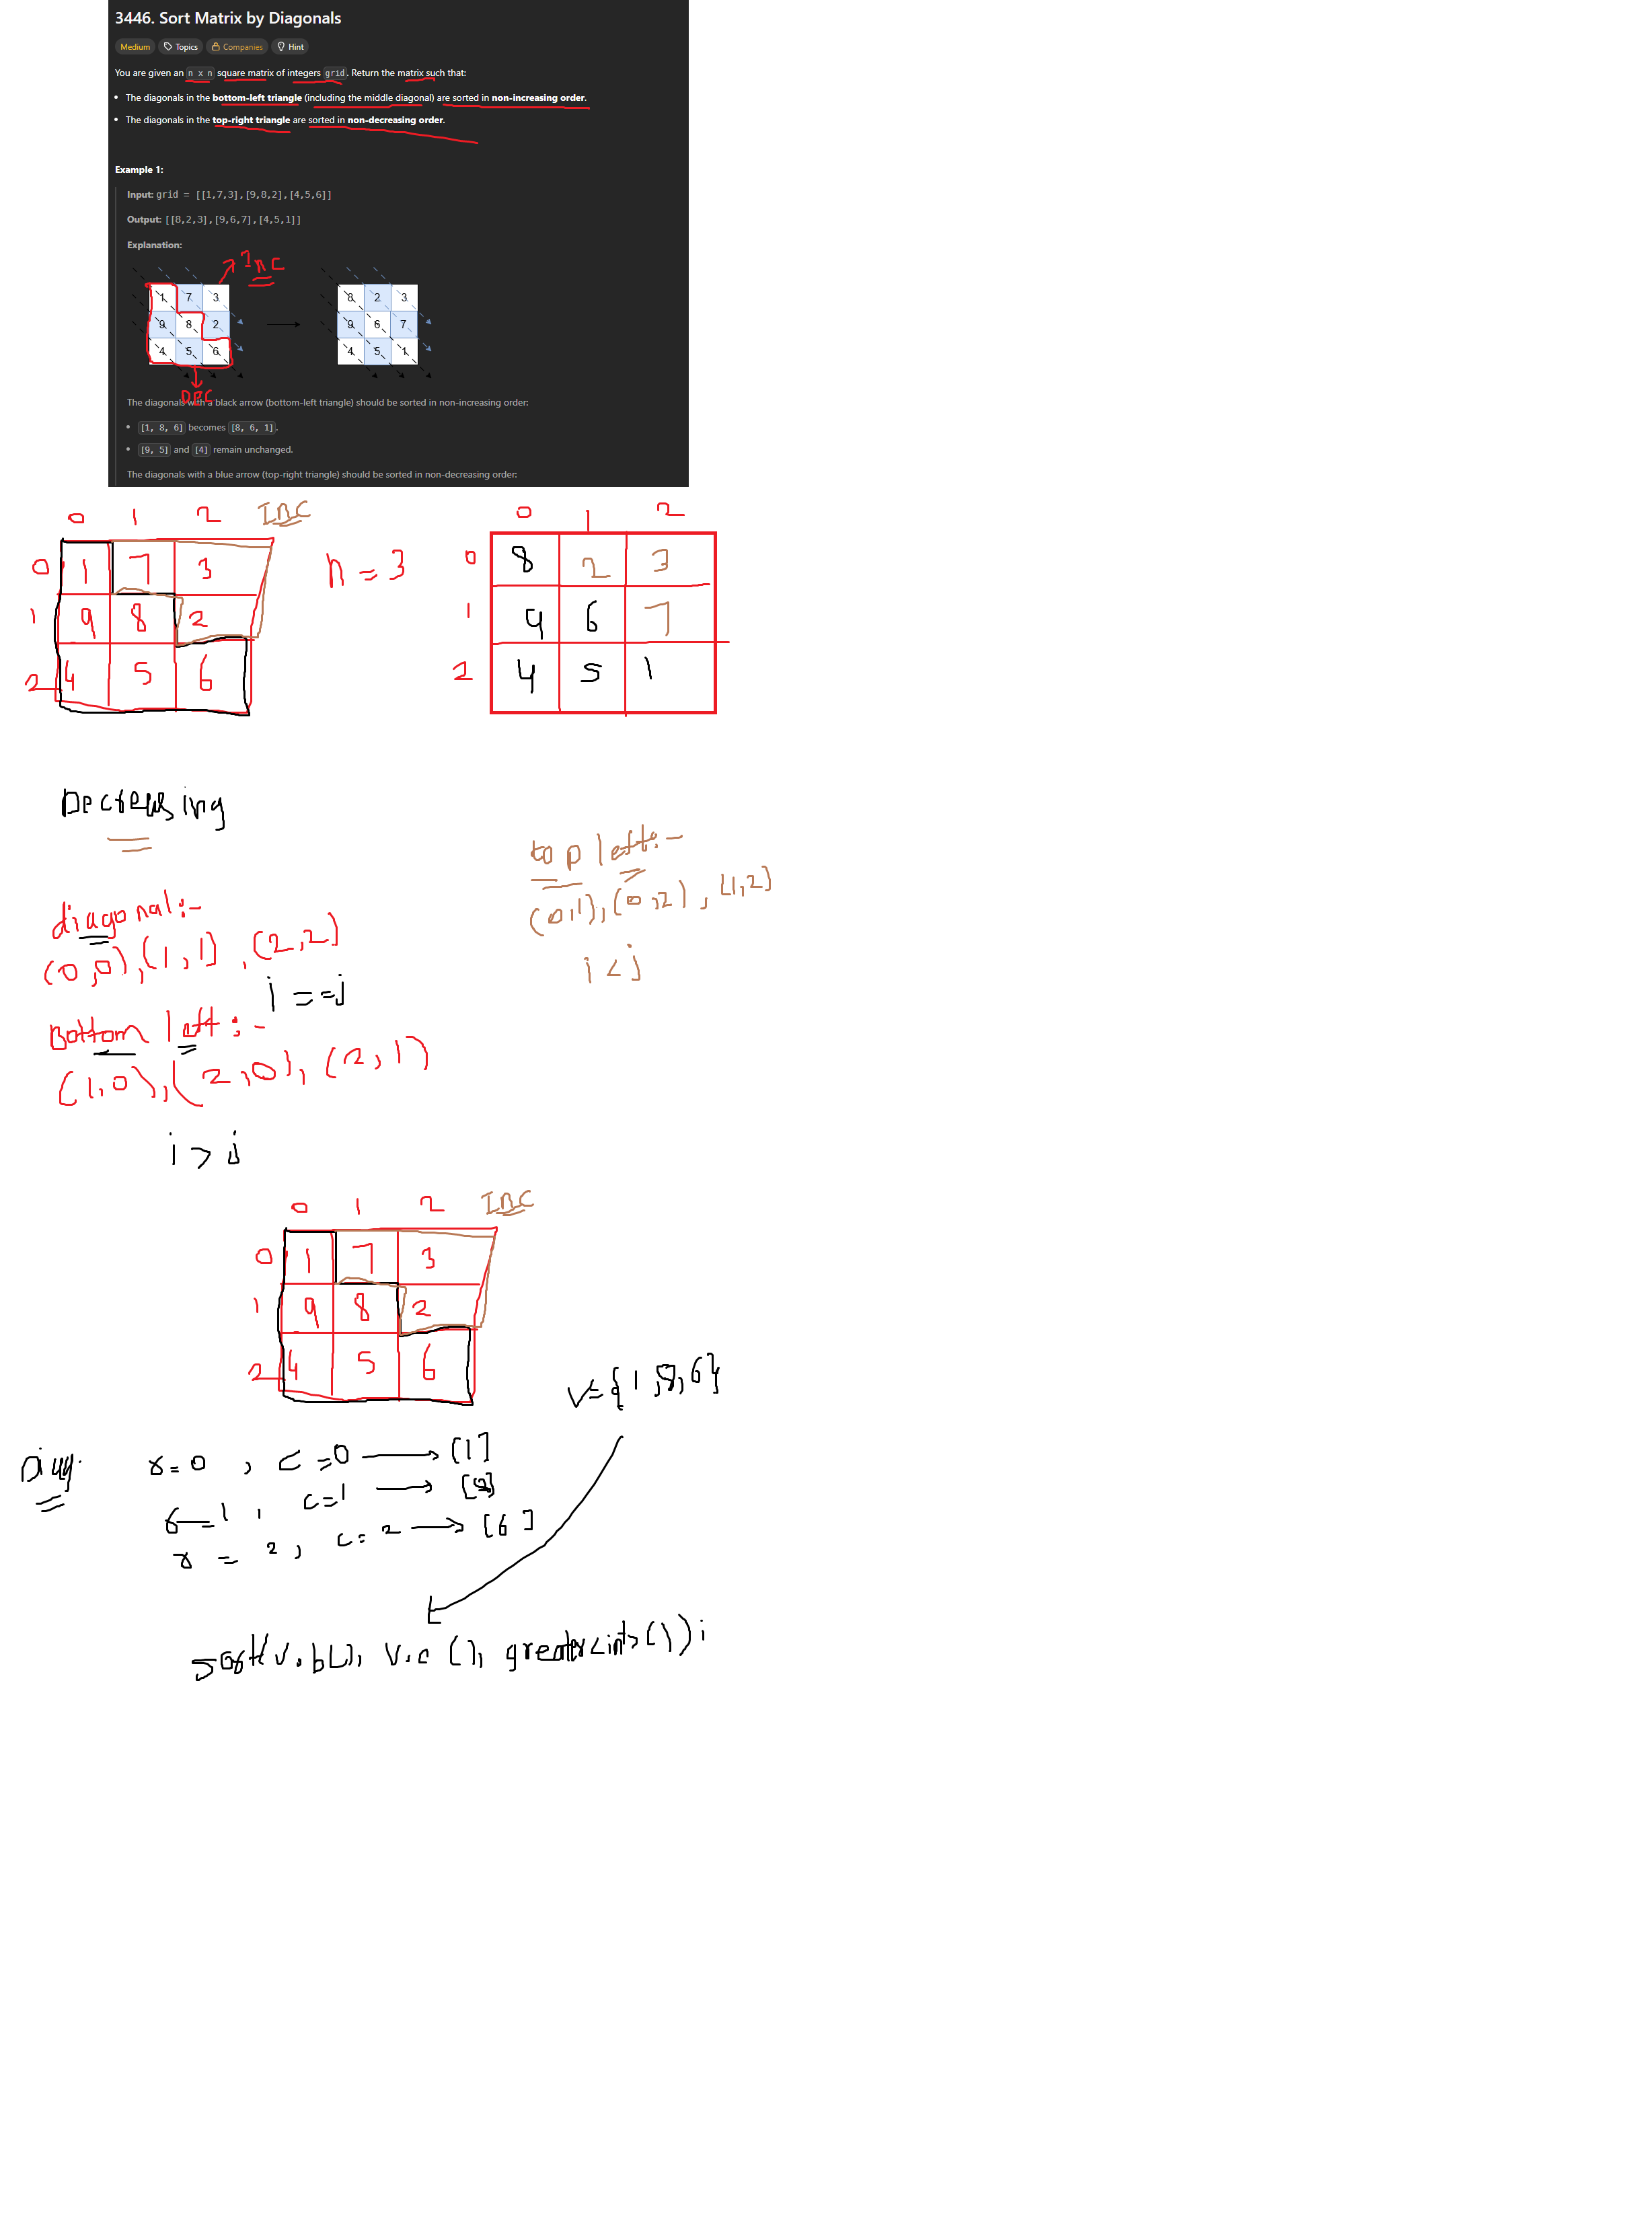 3446. Sort Matrix by Diagonals
Medium Topics Companies Hint
You are given an n x n square matrix of integers grid. Return the matrix such that:
• The diagonals in the bottom-left triangle (including the middle diagonal) are sorted in non-increasing order.
• The diagonals in the top-right triangle are sorted in non-decreasing order.
Example 1:
Input: grid = [[1,7,3],[9,8,2],[4,5,6]]
Output: [[8,2,3],[9,6,7],[4,5,1]]
Explanation:
InC
1 7 3
9 8 2
4 5 6
8 2 3
9 6 7
4 5 1
DEC
The diagonals with a black arrow (bottom-left triangle) should be sorted in non-increasing order:
• [1, 8, 6] becomes [8, 6, 1].
• [9, 5] and [4] remain unchanged.
The diagonals with a blue arrow (top-right triangle) should be sorted in non-decreasing order:
0 1 2 INC
0 1 7 3
1 9 8 2
2 4 5 6
n = 3
0 1 2
0 8 2 3
1 9 6 7
2 4 5 1
Decreasing
diagonal:-
(0,0),(1,1),(2,2)
i ==j
Bottom left:-
(1,0),(2,0),(2,1)
i > j
top left:-
(0,1),(0,2),(1,2)
i < j
0 1 2 INC
0 1 7 3
1 9 8 2
2 4 5 6
v={1,8,6}
Diag. r=0, c=0 → [1]
r=1, c=1 → [8]
r=2, c=2 → [6]
sort(v.b(), v.e(), greater<int>());